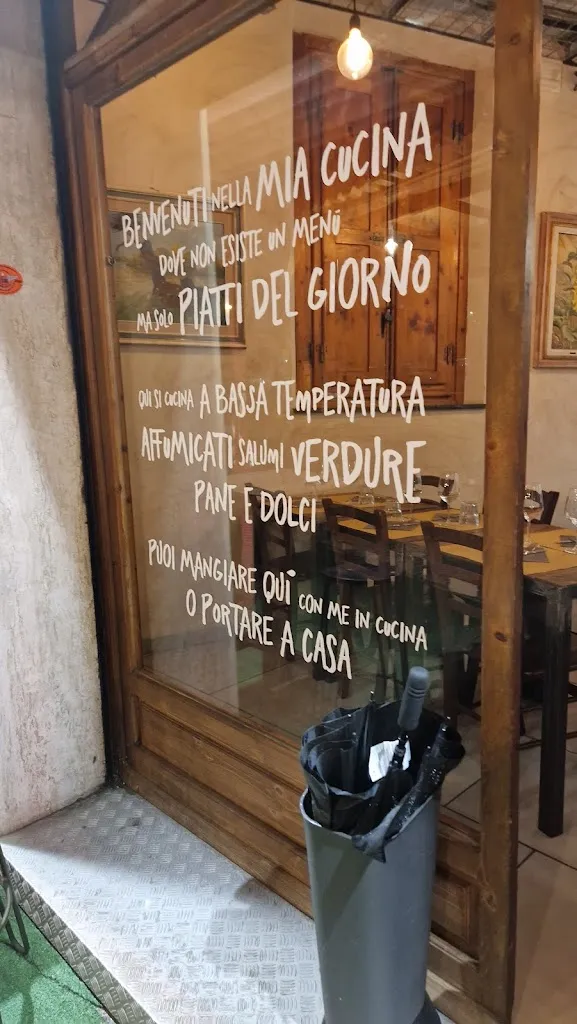 BENVENUTI NELLA MIA CUCINA
DOVE NON ESISTE UN MENÙ
MA SOLO PIATTI DEL GIORNO
QUI SI CUCINA A BASSA TEMPERATURA
AFFUMICATI SALUMI VERDURE
PANE E DOLCI
PUOI MANGIARE QUI CON ME IN CUCINA
O PORTARE A CASA